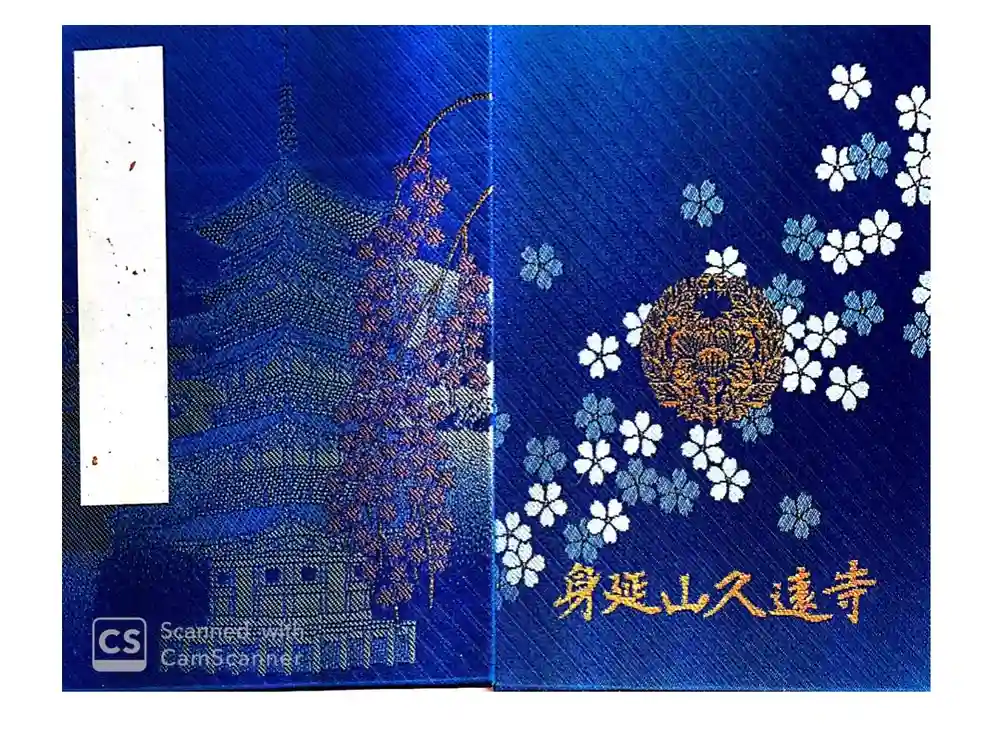 身延山久遠寺
CS Scanned with
CamScanner